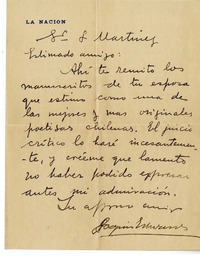 LA NACION
Sr. S Martinez
Estimado amigo:
Ahí te remito los
manuscritos de tu esposa
que estimo como una de
las mejores y mas originales
poetisas chilenas. El juicio
crítico lo haré
te, y creeme que lamento
no haber podido expresar
antes mi admiración.
Tu afmo amigo
Joaquin Edwards